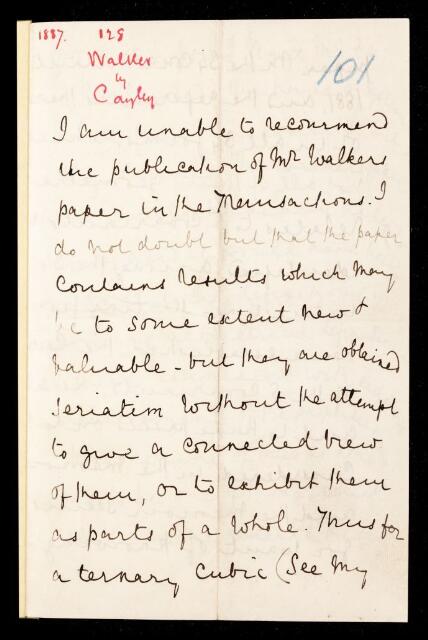 1887. 128
Walker
by
Cayley
101
I am unable to recommend
the publication of Mr Walkers
paper in the Transactions. I
do not doubt but that the paper
contains results which may
be to some extent new &
valuable - but they are obtained
seriatim without the attempt
to give a connected view
of them, or to exhibit them
as parts of a whole. Thus for
a ternary cubic (See my